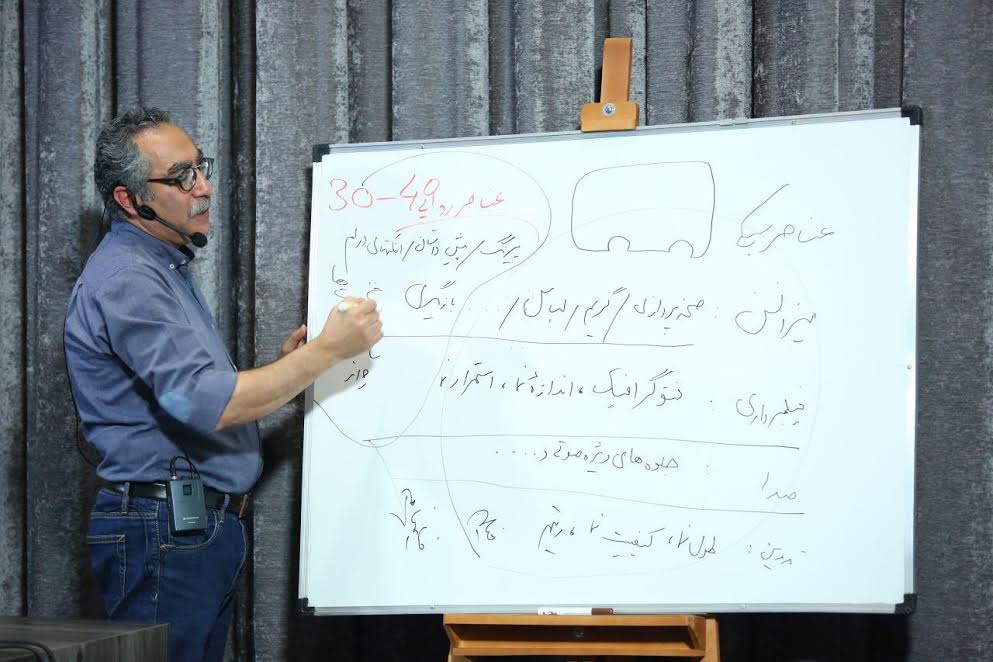 عناصر سبکی
عناصر روایی 49-30
پیرنگ / پیش داستان /
میزانسن : صحنه پردازی / گریم / لباس / بازیگری
فیلمبرداری : فتوگرافیک ، اندازهٔ نما ، استمرار نما
صدا : جلوه های ویژه صوتی و ....
تدوین : طول نما ، کیفیت نما ، ریتم